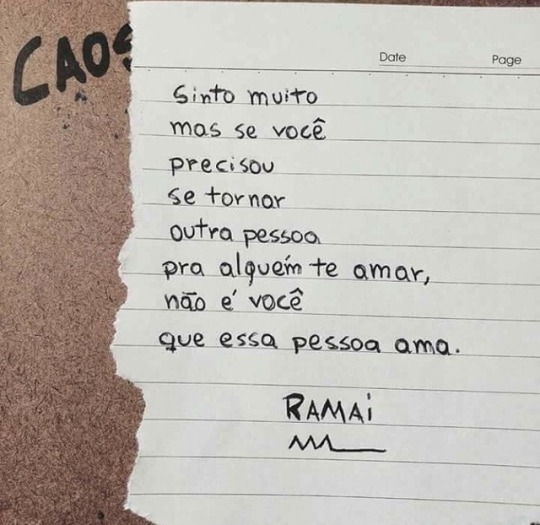 CAOS
Date Page
Sinto muito
mas se você
precisou
se tornar
outra pessoa
pra alguém te amar,
não é você
que essa pessoa ama.
RAMAi